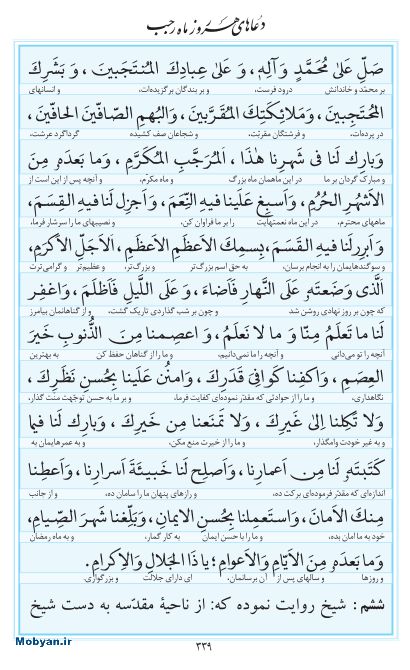 دعاهای هر روز ماه رجب
صَلِّ عَلىٰ مُحَمَّدٍ وَآلِهِ، وَ عَلىٰ عِبادِكَ المُنتَجَبينَ، وَ بَشَرِكَ
بر محمّد و خاندانش درود فرست، و بر بندگان برگزیده‌ات، و انسانهای
المُحتَجِبينَ، وَمَلائِكَتِكَ المُقَرَّبينَ، وَالبُهمِ الصّافّينَ الحافّينَ،
در پرده‌ات، و فرشتگان مقرّبت، و شجاعان صف کشیده گرداگرد عرشت،
وَبارِك لَنا فى شَهرِنا هٰذا، المُرَجَّبِ المُكَرَّمِ، وَما بَعدَهُ مِنَ
و مبارک گردان بر ما در این ماهمان ماه بزرگ و ماه مکرّم، و آنچه پس از این است از
الاَشهُرِ الحُرُمِ، وَاَسبِغ عَلَينا فيهِ النِّعَمَ، وَاَجزِل لَنا فيهِ القِسَمَ،
ماههای محترم، در این ماه نعمتهایت را بر ما فراوان کن، و نصیبهای ما را سرشار فرما،
وَاَبرِر لَنا فيهِ القَسَمَ، بِسمِكَ الاَعظَمِ الاَعظَمِ، الاَجَلِّ الاَكرَمِ،
و سوگندهایمان را به انجام برسان، به حق اسم بزرگ‌تر و بزرگ‌تر، و عظیم‌تر و گرامی‌ترت
الَّذى وَضَعتَهُ عَلَى النَّهارِ فَاَضاءَ، وَ عَلَى اللَّيلِ فَاَظلَمَ، وَاغفِر
که چون بر روز نهادی روشن شد و چون بر شب گذاردی تاریک گشت، و از گناهانمان بیامرز
لَنا ما تَعلَمُ مِنّا وَ ما لا نَعلَمُ، وَ اعصِمنا مِنَ الذُّنوبِ خَيرَ
آنچه را تو می‌دانی و آنچه را ما نمی‌دانیم، و ما را از گناهان حفظ کن به بهترین
العِصَمِ، وَاكفِنا كَوافِىَ قَدَرِكَ، وَامنُن عَلَينا بِحُسنِ نَظَرِكَ،
نگاهداری، و ما را از حوادثی که مقدّر نموده‌ای کفایت فرما، و بر ما به حسن توجّهت منت گذار،
وَلا تَكِلنا اِلىٰ غَيرِكَ، وَلا تَمنَعنا مِن خَيرِكَ، وَبارِك لَنا فيما
و به غیر خودت وامگذار، و ما را از خیرت منع مکن، و به عمرهایمان به
كَتَبتَهُ لَنا مِن اَعمارِنا، وَاَصلِح لَنا خَبيئَةَ اَسرارِنا، وَاَعطِنا
اندازه‌ای که مقدّر فرموده‌ای برکت ده، و رازهای پنهان ما را سامان ده، و از جانب
مِنكَ الاَمانَ، وَاستَعمِلنا بِحُسنِ الايمانِ، وَبَلِّغنا شَهرَ الصِّيامِ،
خود به ما امان بده، و ما را با حسن ایمان به کار گمار، و به ماه رمضان
وَما بَعدَهُ مِنَ الاَيّامِ وَالاَعوامِ؛ يا ذَا الجَلالِ وَالاِكرامِ.
و روزها و سالهای پس از آن برسانمان، ای دارای جلالت و بزرگواری.
ششم: شیخ روایت نموده که: از ناحیهٔ مقدّسه به دست شیخ
۳۳۹
Mobyan.ir